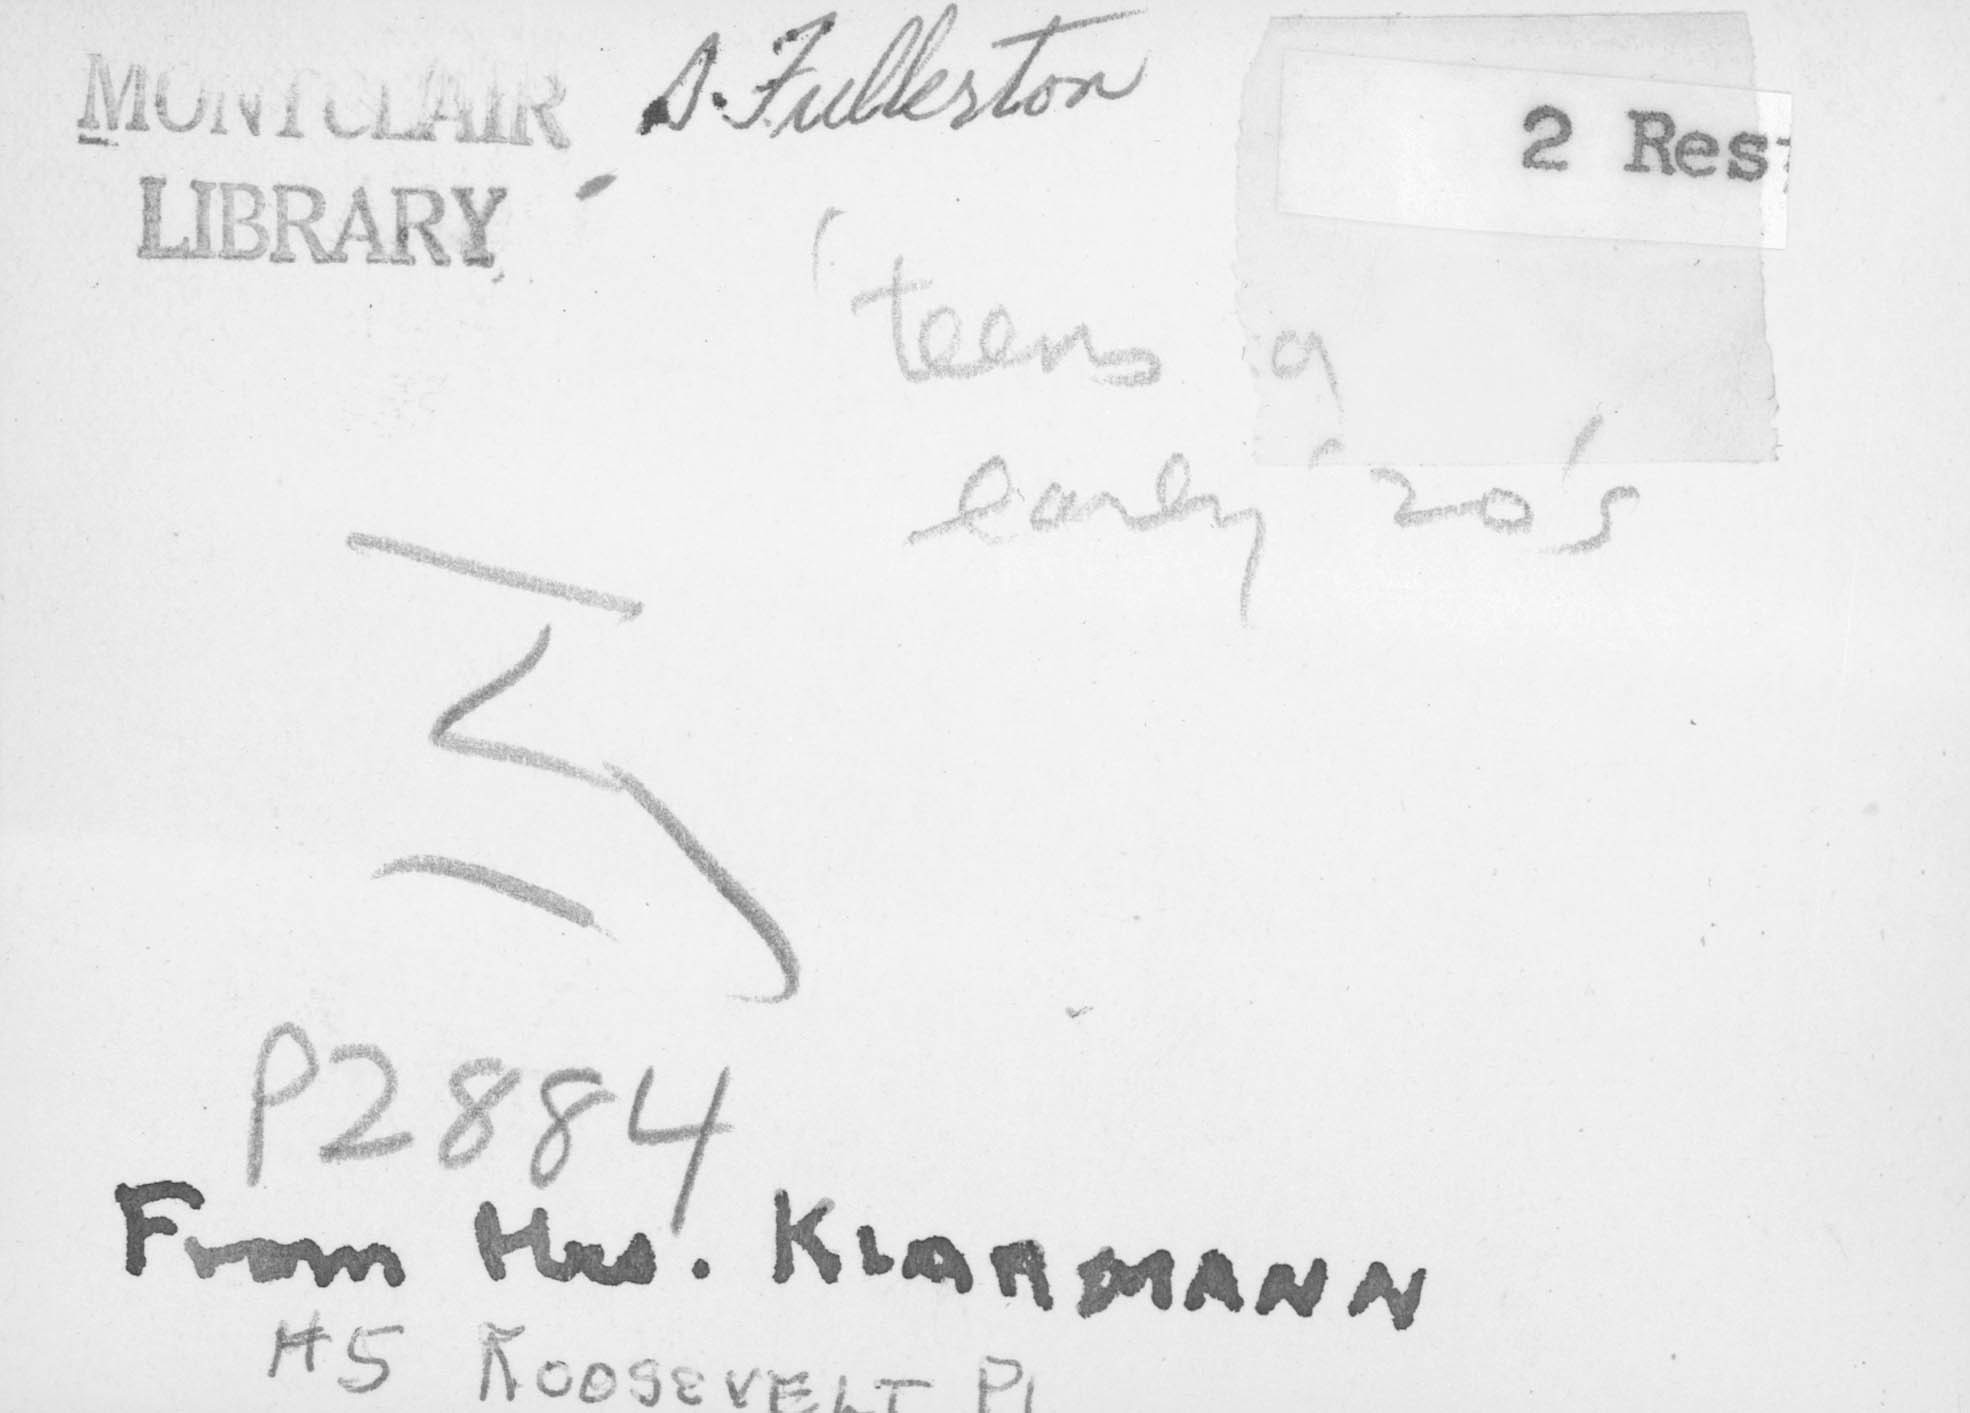 MONTCLAIR
LIBRARY
S. Fullerton
2 Res
'teens
early '20's
P2884
From Mrs. KLARMANN
45 ROOSEVELT Pl